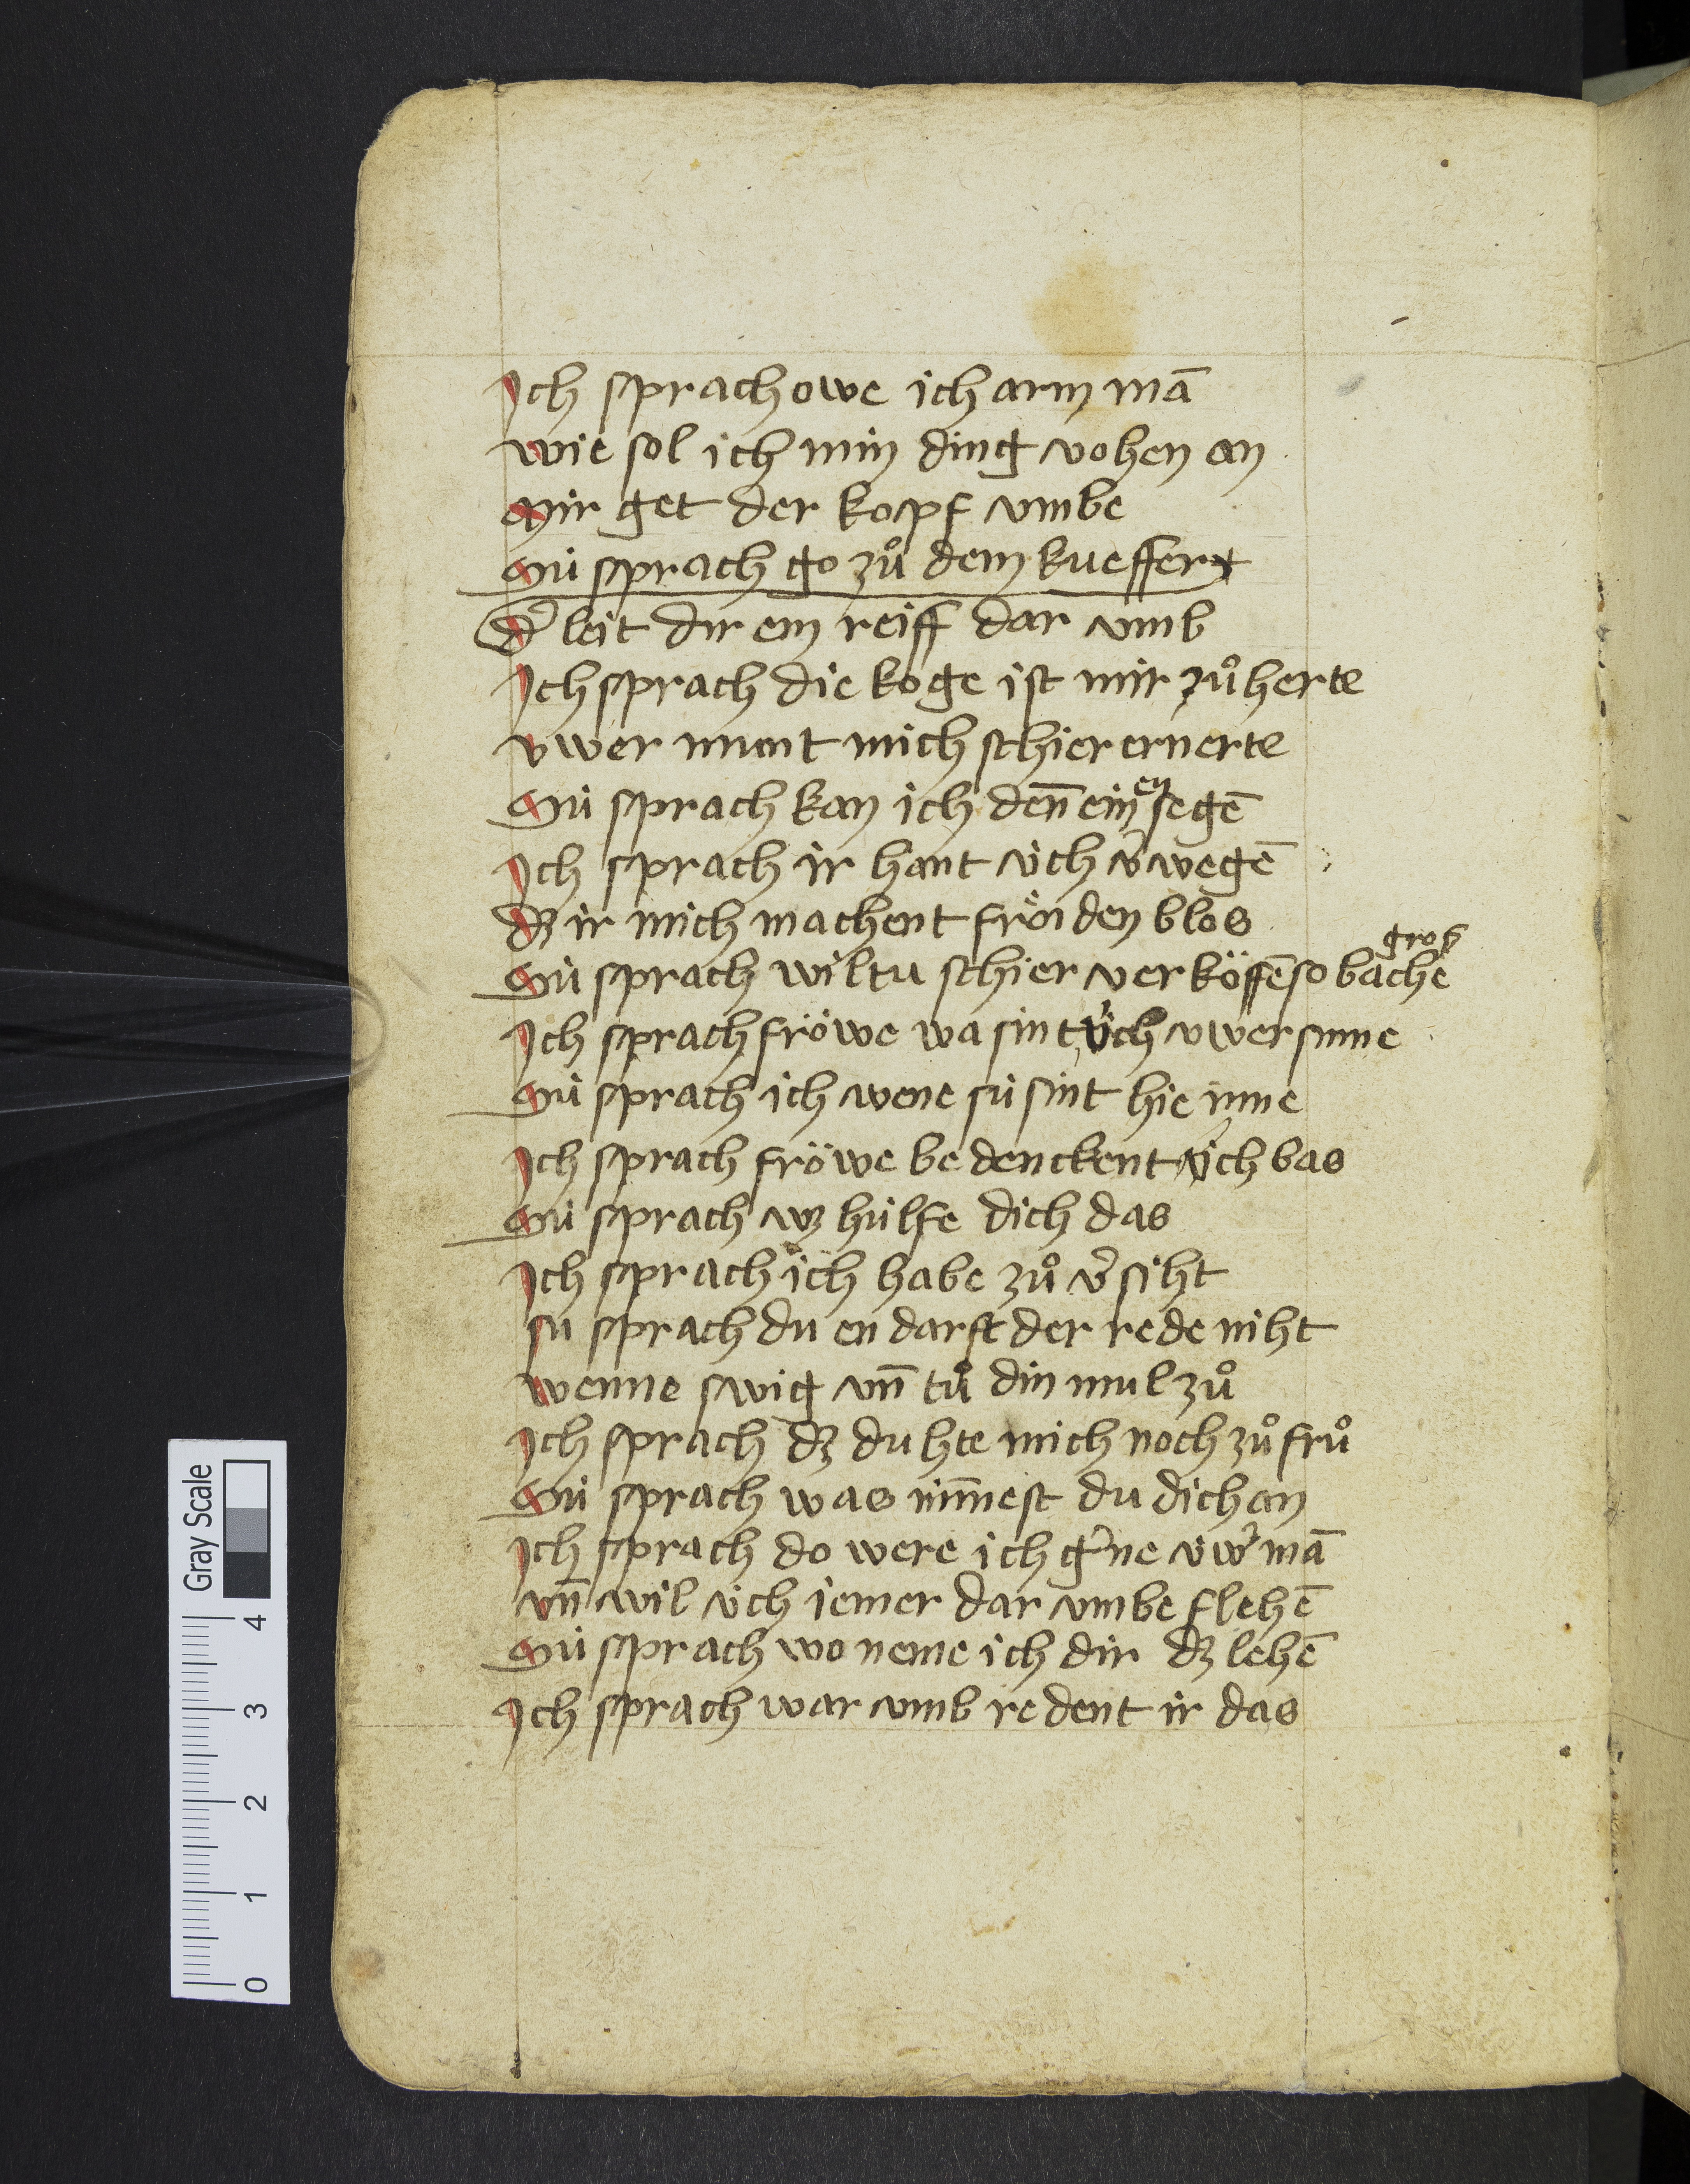 Ich sprach owe ich arm mā
wie sol ich min ding vohen an
Mir get der kopf vmbe
Sú sprach go zů dem kueffer
d' leit dir ein reiff dar vmb
Ich sprach die koge ist mir zů herte
vwer munt mich schier ernerte
Sú sprach kan ich den̄ ein en segē
Ich sprach ir hant úch v'wegē
dz ir mich machent fröiden blos
gros
Sú sprach wiltu schier verköffē so bachē
Ich sprach fröwe wa sint úch vwer sinne
Sú sprach ich wene sú sint hie inne
Ich sprach fröwe bedenckent úch bas
Sú sprach wz hulfe dich das
Ich sprach ich habe zů v'siht
sú sprach du en darft der rede niht
wenne swig vn̄ tů din mul zů
Ich sprach dz duhte mich noch zů frů
Sú sprach was nim̄est du dich an
Ich sprach do were ich g'ne úw' mā
vn̄ wil úch iemer dar vmbe flehē
Sú sprach wo neme ich dir dz lehē
Ich sprach war vmb redent ir das
Gray Scale
0 1 2 3 4